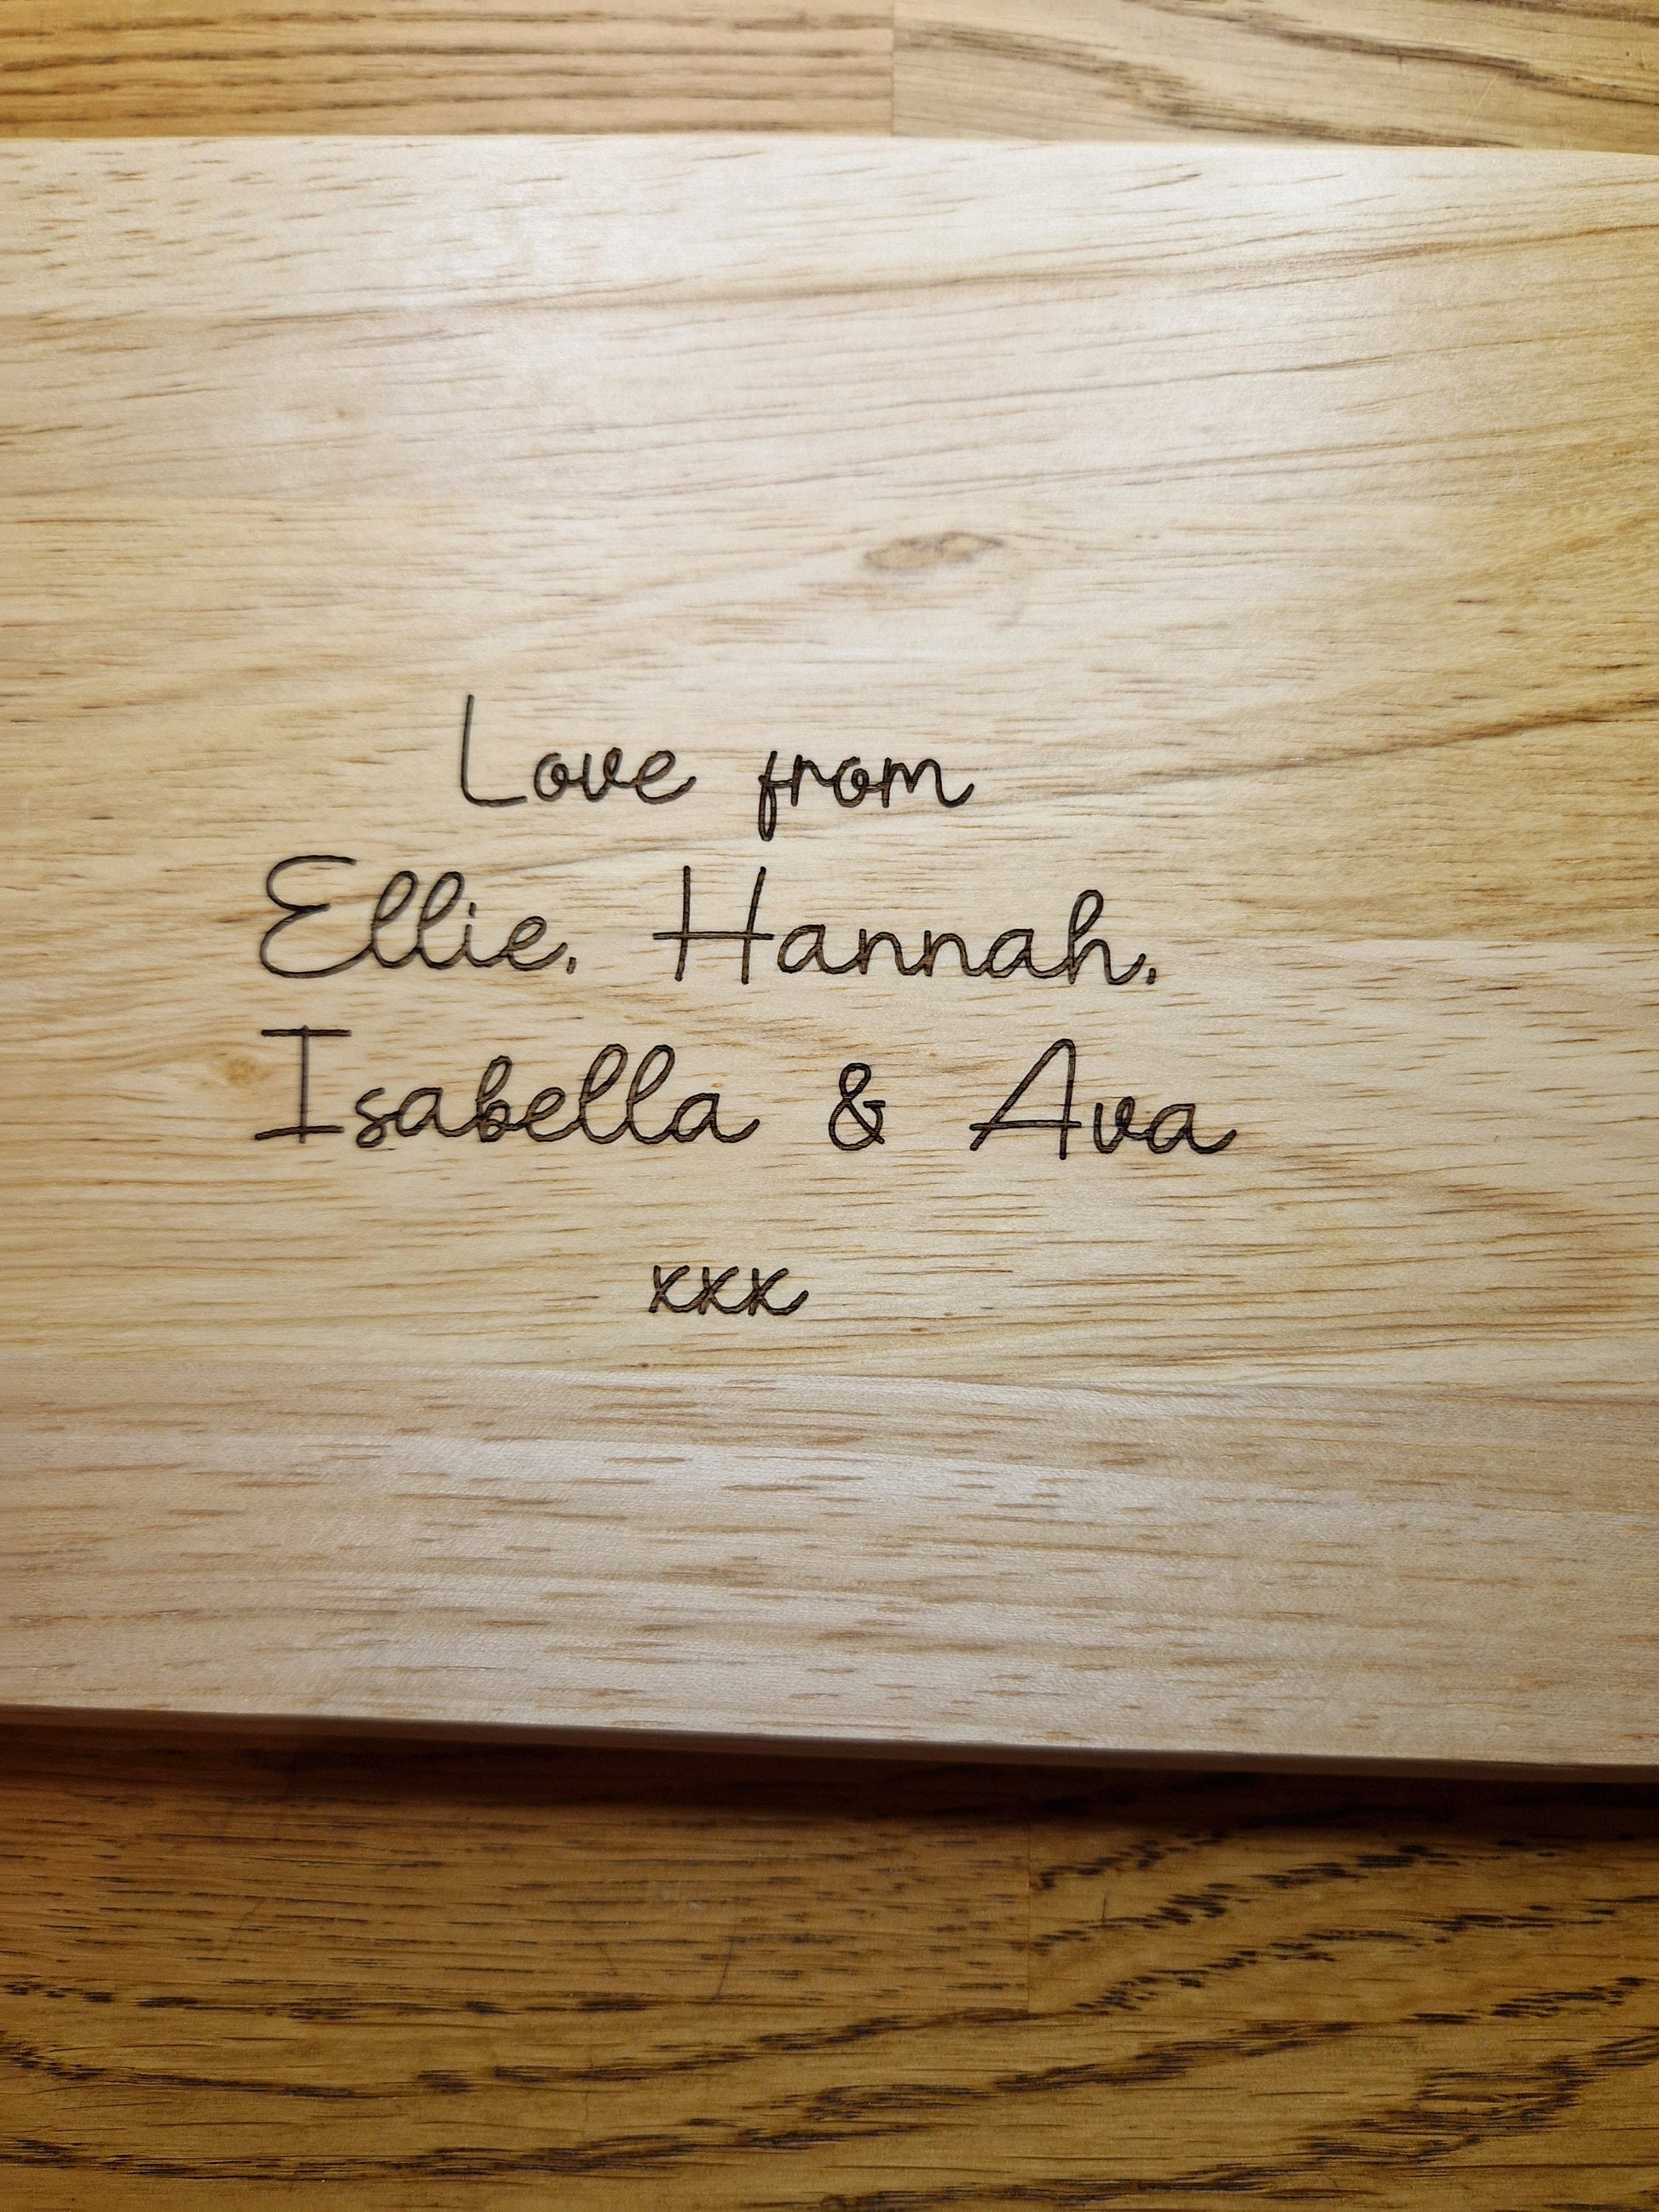 Love from
Ellie, Hannah,
Isabella & Ava
xxx